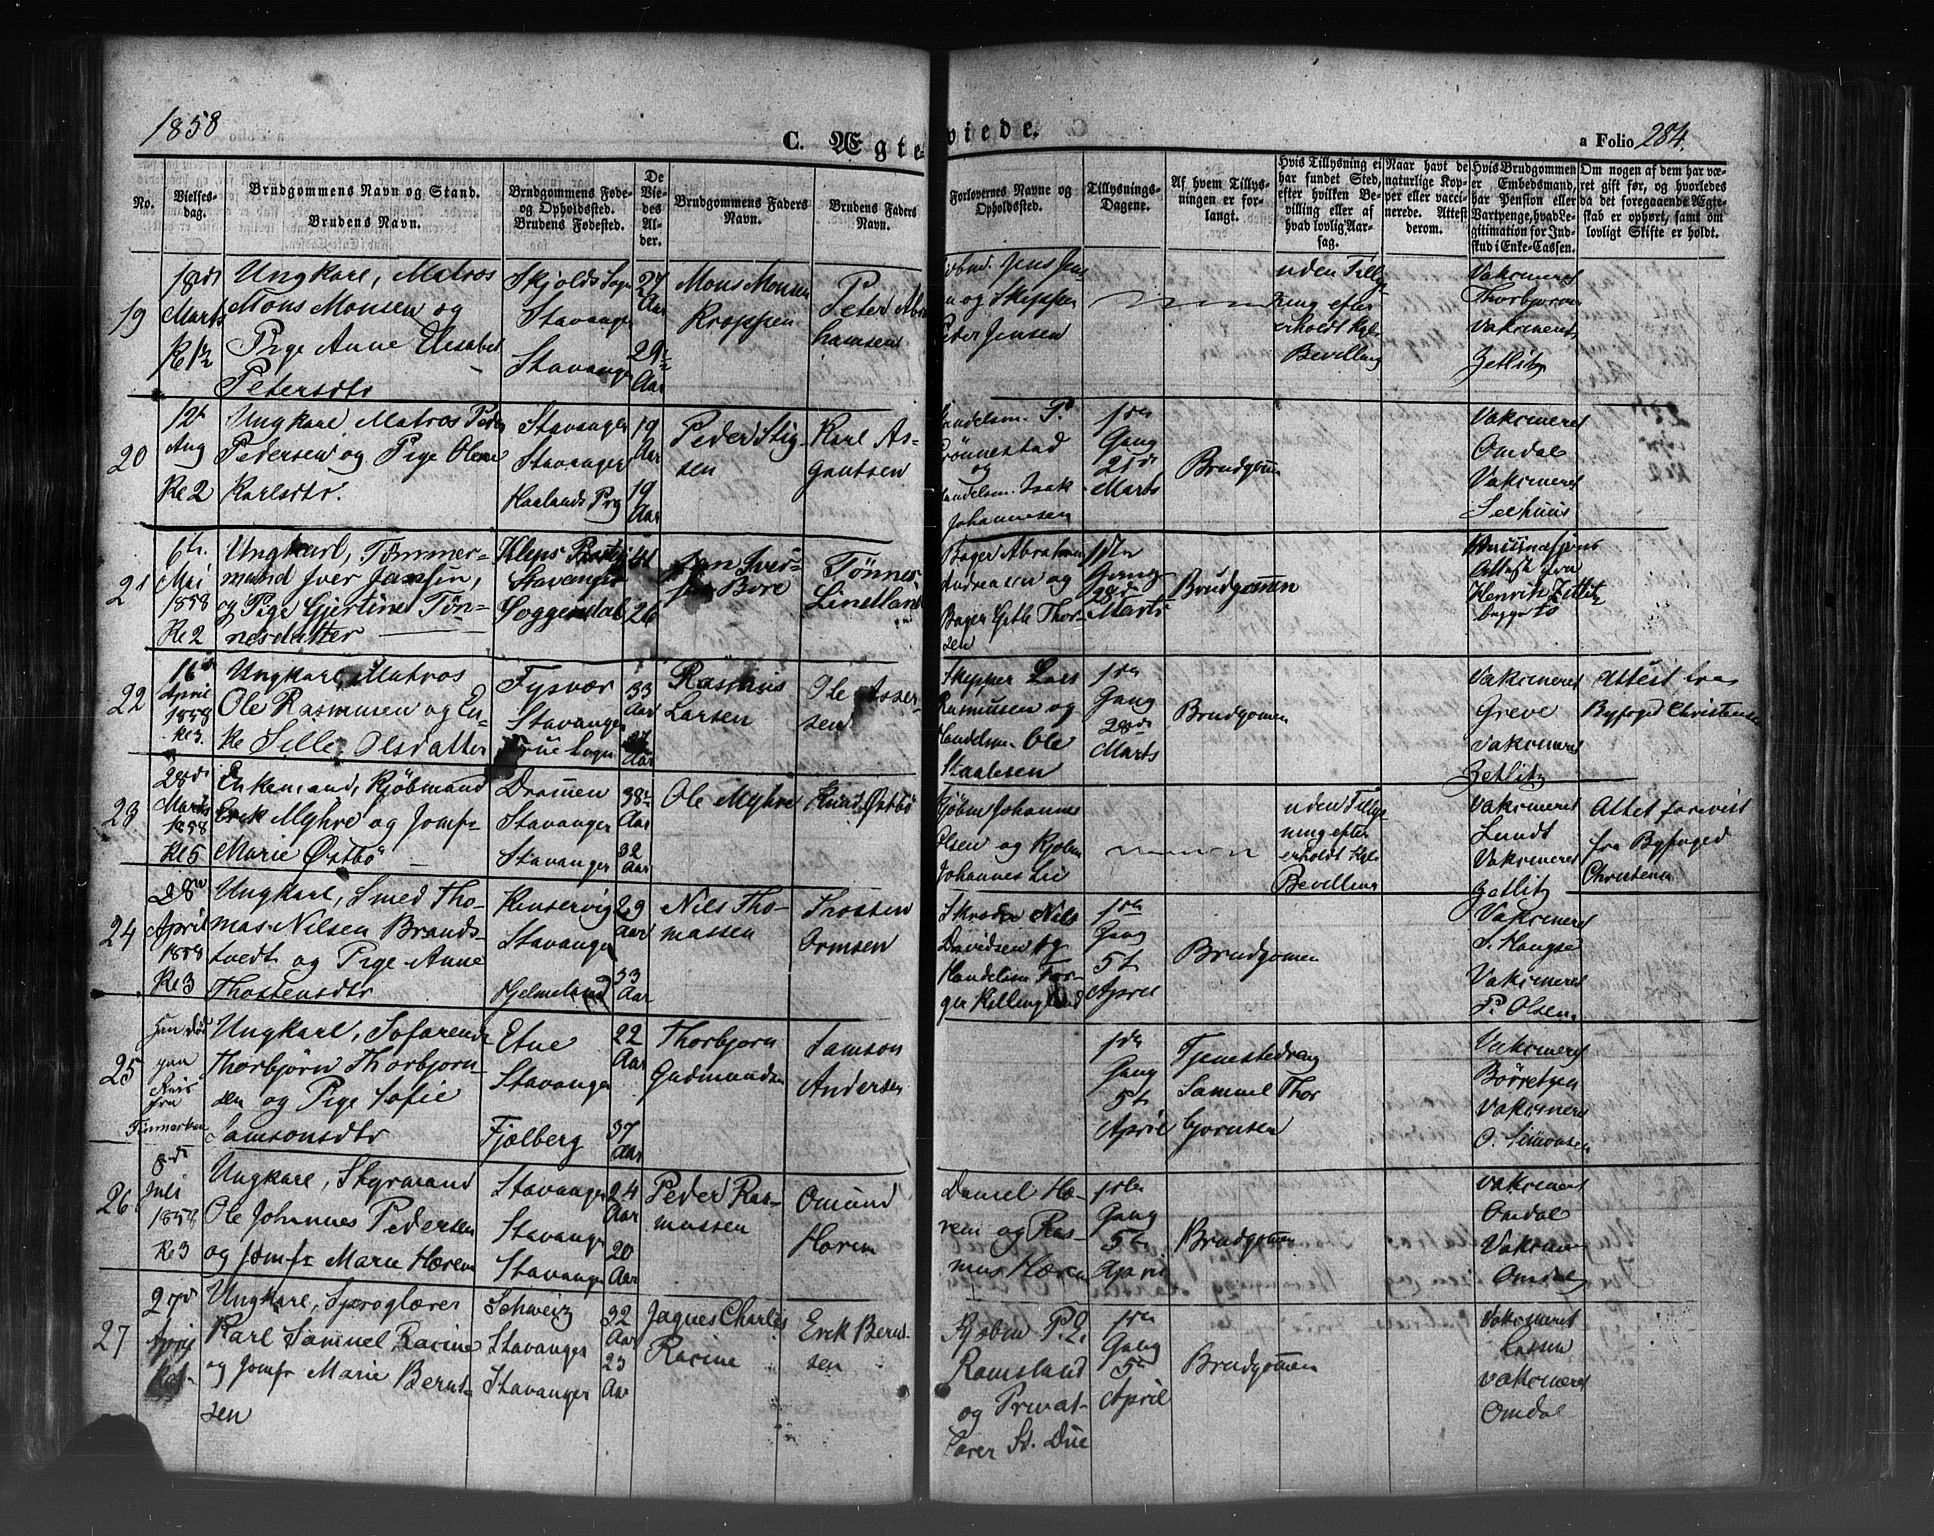 1858
C. Ægteviede.
a Folio 284.
No.
Vielsesdag.
Brudgommens Navn og Stand.
Brudens Navn.
Brudgommens Føde- og Opholdssted.
Brudens Fødested.
De Viedes Alder.
Brudgommens Faders Navn.
Brudens Faders Navn.
Forlovernes Navne og Opholdssted.
Tillysnings-Dagene.
Af hvem Tillysningen er forlangt.
Hvis Tillysning ei har fundet Sted, efter hvilken Bevilling eller af hvad lovlig Aarsag.
Naar havt de naturlige Kopper eller vaccinerede. Attest derom.
Hvis Brudgommen er Embedsmand, har Pension eller Vartpenge, hvad Legitimation for Indskud i Enke-Cassen.
Om nogen af dem har været gift før, og hvorledes da det foregaaende Ægteskab er ophørt, samt om lovligt Skifte er holdt.
19
18de
Marts
Kl 1½
Ungkarl, Matros
Mons Monsen og
Pige Anne Elisabet
Petersdtr
Skjolds Sogn
Stavanger
Stavanger
27
Aar
29
Aar
Mons Monsen
Kroppen
Peter Abra
hamsen
Jens Jen
n og Skipper
Peter Jensen
uden Tillys
ning efter
erholdt Kgl.
Bevilling
Vakcineret
Thorbjørn
Vakcineret
Zetlitz
20
12t
Aug
Kl 2
Ungkarl Matros Peder
Pedersen og Pige Olene
Karlsdtr.
Stavanger
Stavanger
Haalands Prg
19
Aar
19
Aar
Peder Stig-
sen
Karl As-
gautsen
Handelsm. P.
Grönnestad
og
Handelsm. Isak
Johannesen
1ste
Gang
21de
Marts
Brudgommen
Vakcineret
Omdal
Vakcineret
Seehuus
21
6te
Mai
1858
Kl 2
Ungkarl, Tömmer-
mand Iver Jansen,
og Pige Gjertine Tön-
nesdatter
Kleps Præstg
Stavanger
Soggendal
41
26
Jan Iver-
sen Bore
Tönnes
Linetland
Bager Abraham
Andreasen og
Bager Getle Thor-
sen
1ste
Gang
28de
Marts
Brudgommen
Attest fra
Henrik Zetlitz
begge to
22
16de
April
1858
Kl 3.
Ungkarl Matros
Ole Rasmusen og En-
ke Sille Olsdatter
Tysvær
Stavanger
Frue Sogn
33
Aar
Aar
Rasmus
Larsen
Ole Asser-
sen
Skipper Lars
Rasmusen og
Handelsm. Ole
Staalesen
1ste
Gang
28de
Marts
Brudgommen
Vakcineret
Greve
Vakcineret
Zetlitz
Attest fra
Byfoged Christensen
23
28de
Marts
1858
Kl 5
Enkemand, Kjöbmand
Erik Myhre og Jomfr
Marie Östbö
Drammen
Stavanger
Stavanger
38
Aar
32
Aar
Ole Myhre
Knud Östbö
Kjöbm Johannes
Olsen og Kjöbm
Johannes Lie
uden Tillys
ning efter
erholdt Kgl
Bevilling
Vakcineret
Lundt
Vakcineret
Zetlitz
Attest forevist
fra Byfoged
Christensen
24
28de
April
1858
Kl 3
Ungkarl, Smed Tho-
mas Nilsen Brands-
tvedt og Pige Anne
Thostensdtr
Kinservig
Stavanger
Hjelmeland
29
Aar
33
Aar
Nils Tho-
massen
Thosten
Ormsen
Skræder Nils
Davidsen og
Handelsm Tor-
ger Kellingland
1ste
Gang
5t
April
Brudgommen
Vakcineret
S. Hauge
Vakcineret
P. Olsen.
25
Han död
paa
Reis
fra
Finmarken
Ungkarl, Söfarende
Thorbjörn Thorbjörn-
sen og Pige Sofie
Samsonsdtr
Etne
Stavanger
Fjælberg
22
Aar
37
Aar
Thorbjörn
Gudmundsen
Samson
Andersen
1ste
Gang
5t
April
Tjenestedreng
Samuel Thor
bjørnsen
Vakcineret
Börretzen
Vakcineret
O. Simonsen
26
8de
Juli
1858
Kl 3
Ungkarl, Styrmand
Ole Johannes Pedersen
og Jomfr Marie Hæren
Stavanger
Stavanger
Stavanger
24
Aar
20
Aar
Peder Ras-
mussen
Omund
Hæren
Daniel Hæ-
rem og Ras-
mus Hæren
1ste
Gang
5t
April
Brudgommen
Vakcineret
Omdal
Vakcin
Omdal
27
27de
April
Ungkarl, Sproglærer
Karl Samuel Racine
og Jomfr Marie Bernt-
sen
Schweiz
Stavanger
Stavanger
32
Aar
23
Aar
Jaques Charles
Racine
Erik Bernt-
sen
Kjöbm P. L.
Ramsland
og Privat-
lærer St. Due
1ste
Gang
5
April
Brudgommen
Vakcineret
Lassen
Vakcineret
Omdal